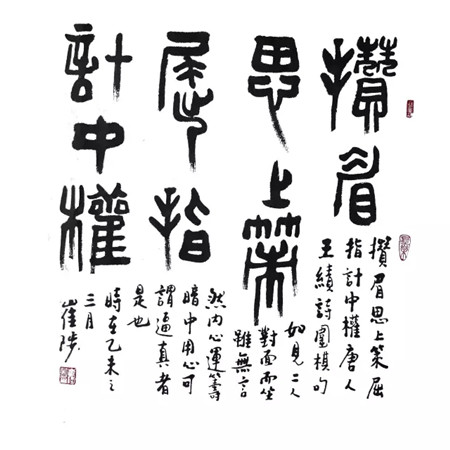 攢眉
思上策
屈指
計中權
攢眉思上策屈
指計中權唐人
王績詩圍棋句
如見二人
對面而坐
雖無言
然內心運籌
暗中用心可
謂逼真者
是也
時在乙未之
三月
崔陟